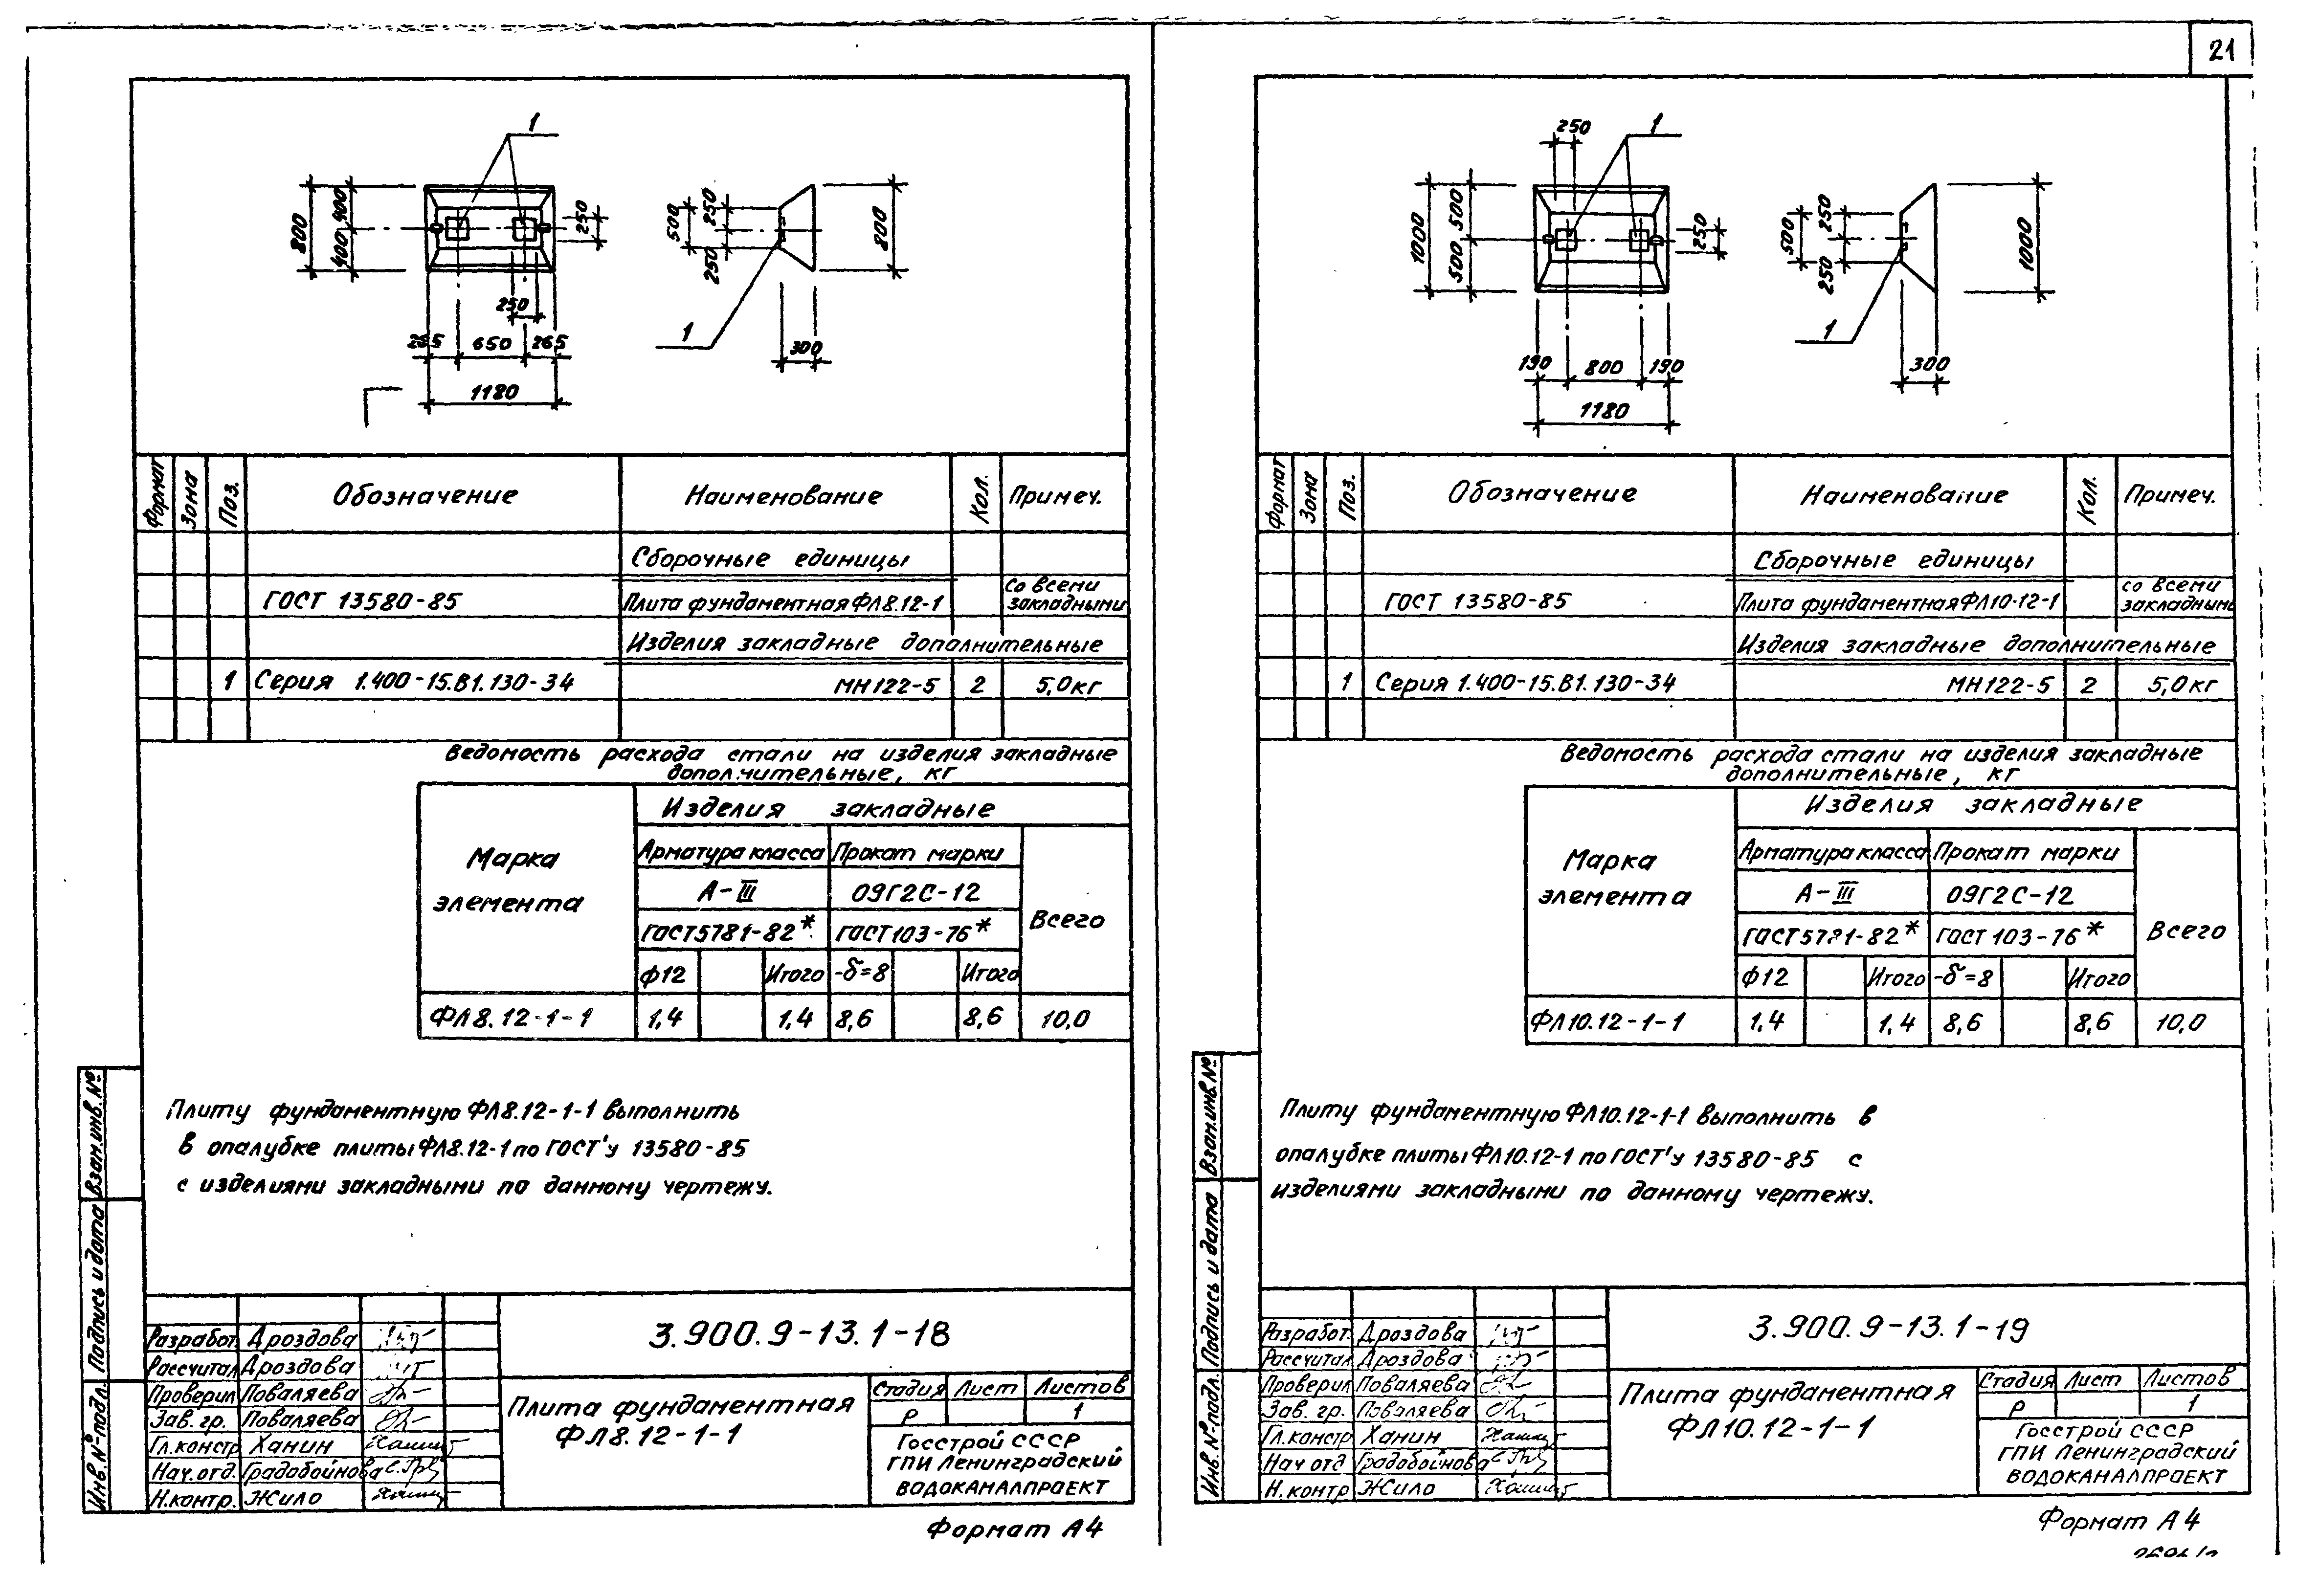 21
1
800
400
400
250
250
265
650
265
1180
500
250
250
800
1
300
Формат
Зона
Поз.
Обозначение
Наименование
Кол.
Примеч.
Сборочные единицы
ГОСТ 13580-85 Плита фундаментная ФЛ8.12-1 со всеми закладными
Изделия закладные дополнительные
1 Серия 1.400-15.В1.130-34 МН122-5 2 5,0кг
Ведомость расхода стали на изделия закладные
дополнительные, кг
Марка элемента
Изделия закладные
Арматура класса Прокат марки
А-III 09Г2С-12
Всего
ГОСТ5781-82* ГОСТ103-76*
ф12 Итого -δ=8 Итого
ФЛ8.12-1-1 1,4 1,4 8,6 8,6 10,0
Плиту фундаментную ФЛ8.12-1-1 выполнить
в опалубке плиты ФЛ8.12-1 по ГОСТ'у 13580-85
с изделиями закладными по данному чертежу.
Взам.инв.№
Подпись и дата
Инв.№подл.
Разработ. Дроздова
Рассчитал Дроздова
Проверил Поваляева
Зав. гр. Поваляева
Гл.констр Ханин
Нач.отд. Градобойнова
Н.контр. Жило
3.900.9-13.1-18
Плита фундаментная
ФЛ8.12-1-1
Стадия Лист Листов
Р 1
Госстрой СССР
ГПИ Ленинградский
ВОДОКАНАЛПРОЕКТ
Формат А4
250
1
1000
500
500
250
190
800
190
1180
500
250
250
1000
1
300
Формат
Зона
Поз.
Обозначение
Наименование
Кол.
Примеч.
Сборочные единицы
ГОСТ 13580-85 Плита фундаментная ФЛ10.12-1 со всеми закладными
Изделия закладные дополнительные
1 Серия 1.400-15.В1.130-34 МН122-5 2 5,0кг
Ведомость расхода стали на изделия закладные
дополнительные, кг
Марка элемента
Изделия закладные
Арматура класса Прокат марки
А-III 09Г2С-12
Всего
ГОСТ5781-82* ГОСТ103-76*
ф12 Итого -δ=8 Итого
ФЛ10.12-1-1 1,4 1,4 8,6 8,6 10,0
Плиту фундаментную ФЛ10.12-1-1 выполнить в
опалубке плиты ФЛ10.12-1 по ГОСТ'у 13580-85 с
изделиями закладными по данному чертежу.
Взам.инв.№
Подпись и дата
Инв.№подл.
Разработ. Дроздова
Рассчитал Дроздова
Проверил Поваляева
Зав. гр. Поваляева
Гл.констр Ханин
Нач отд Градобойнова
Н.контр Жило
3.900.9-13.1-19
Плита фундаментная
ФЛ10.12-1-1
Стадия Лист Листов
Р 1
Госстрой СССР
ГПИ Ленинградский
ВОДОКАНАЛПРОЕКТ
Формат А4